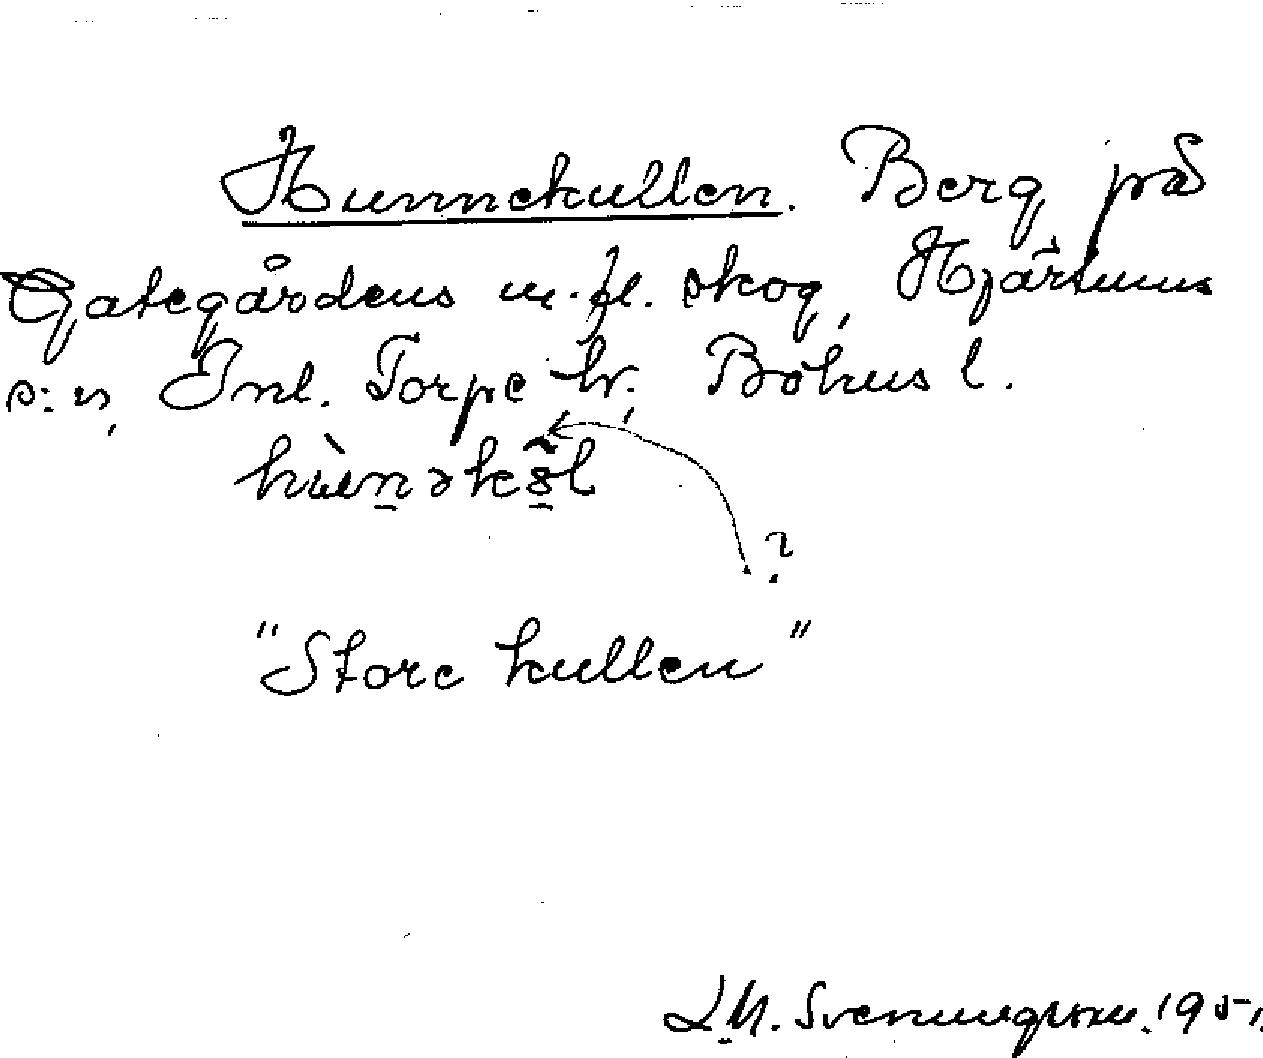 Hunnekullen. Berg på
Gategårdens m.fl. skog, Hjärtums
s:n, Inl. Torpe hr, Bohus l.
?
"Store kullen"
Svenungsson. 195